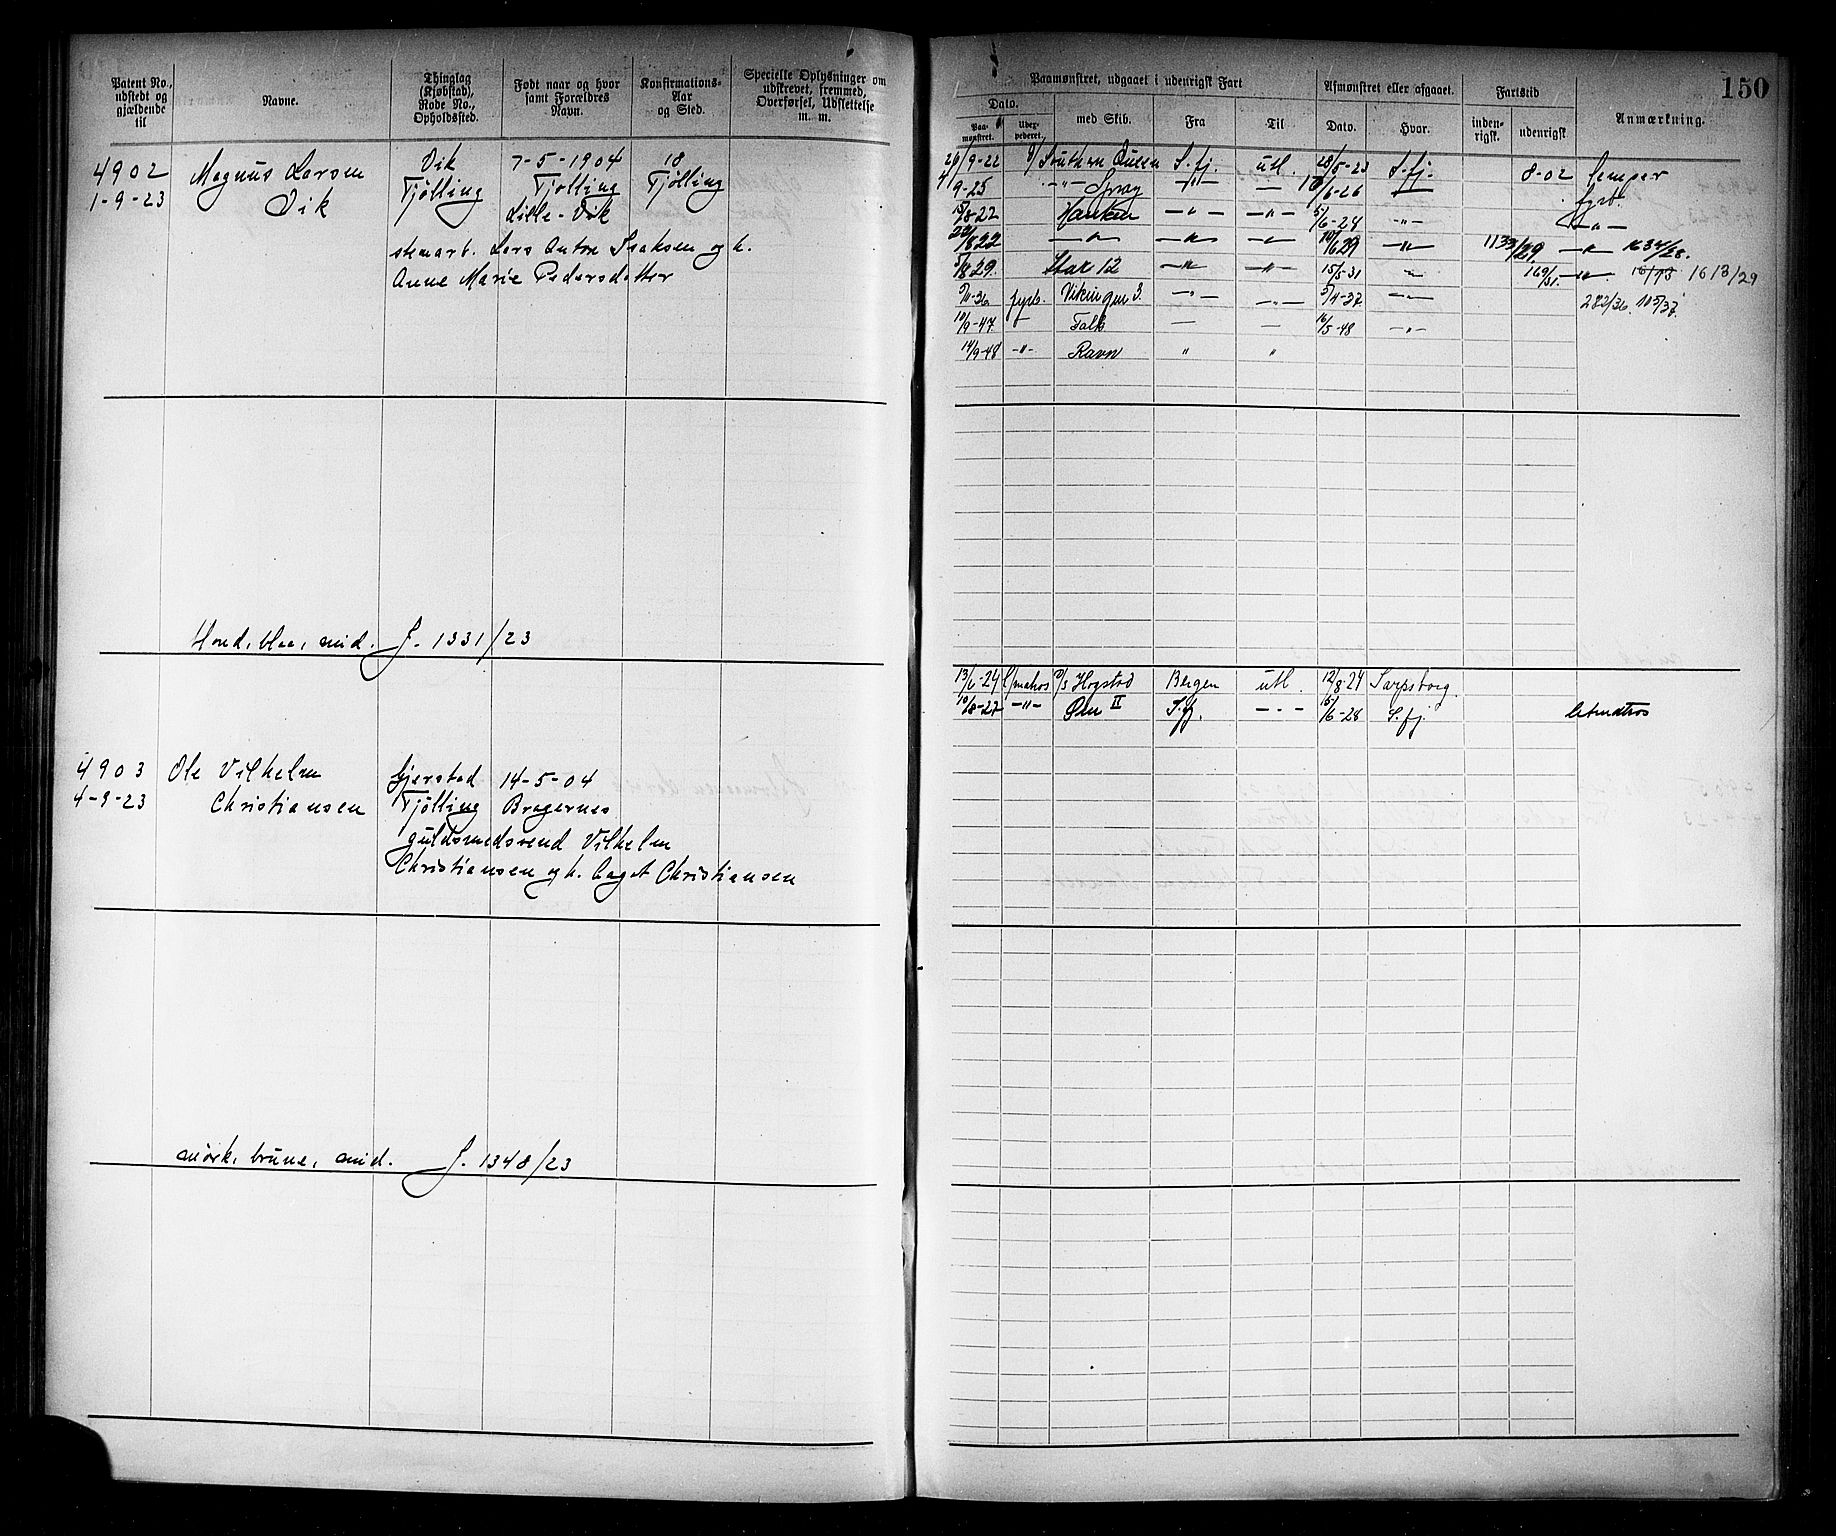 Patent No., udstedt og gjældende til
Navne.
Thinglag (Kjøbstad), Rode No., Opholdssted.
Født naar og hvor samt Forældres Navn.
Konfirmations-Aar og Sted.
Specielle Oplysninger om udskrevet, fremmed, Overførsel, Udslettelse m. m.
4902 Magnus Larsen Vik 7-5-1904 18
1-9-23 Vik Tjølling Tjølling Tjølling
Lille-Vik
stenarb. Lars Anton Isaksen og h.
Anne Marie Pedersdatter
blond, blaa, mid. J. 1331/23
4903 Ole Vilhelm Gjerstad 14-5-04
4-9-23 Christiansen Tjølling Bragernes
guldsmedsvend Vilhelm
Christiansen og h. Aagot Christiansen
mörk, brune, mid. J. 1348/23
150
Paamønstret, udgaaet i udenrigsk Fart
Afmønstret eller afgaaet.
Fartstid
Anmærkning.
Dato.
Paa-mønstret.
Udex-pederet.
med Skib.
Fra
Til
Dato.
Hvor.
inden-rigsk.
udenrigsk
26/9-22 Southern Queen S.fj. utl. 28/5-23 S.fj. 8-02 lemper
4/9-25 -"- Spray -"- — 18/6-26 — fyrb.
15/8-22 Hauken -"- -"- 5/6-24 -"- -"-
22/8 22 -"- -"- -"- 10/6 29 -"- 1133/29 -"- 1634/28.
5/8 29. Star 12 -"- -"- 15/5-31 - 169/31. -"- 1613/29
5/11-36 fyrb. Vikingen 3. -"- -"- 5/4-37 -"- 282/36. 105/37.
10/9-47 Falk — — 16/5-48 -"-
14/9-48 -"- Ravn " "
13/6-24 l/matros D/S Hogstad Bergen utl. 12/8-24 Sarpsborg.
10/8-27 -"- Örn II S.fj. -"- 15/6-28 S.fj. letmatros